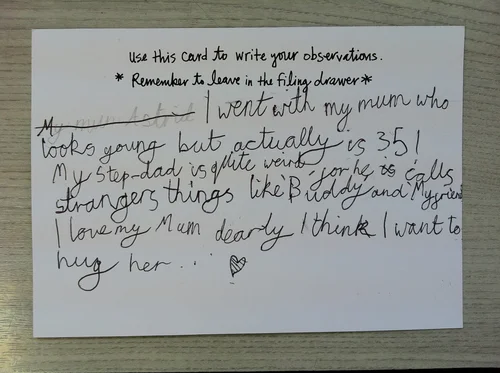 Use this card to write your observations.
* Remember to leave in the filing drawer *
My mum Astrid I went with my mum who
looks young but actually is 35!
My step-dad is quite weird, for he is calls
strangers things like Buddy and My friend
I love my Mum dearly I think I want to
hug her...